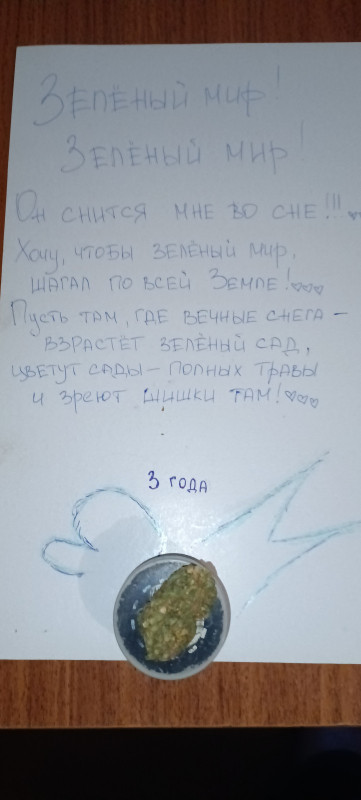 Зелёный мир!
Зелёный мир!
Он снится мне во сне!!!
Хочу, чтобы зелёный мир,
шагал по всей Земле!
Пусть там, где вечные снега –
взрастёт зелёный сад,
цветут сады – полных травы
и зреют шишки там!
3 года